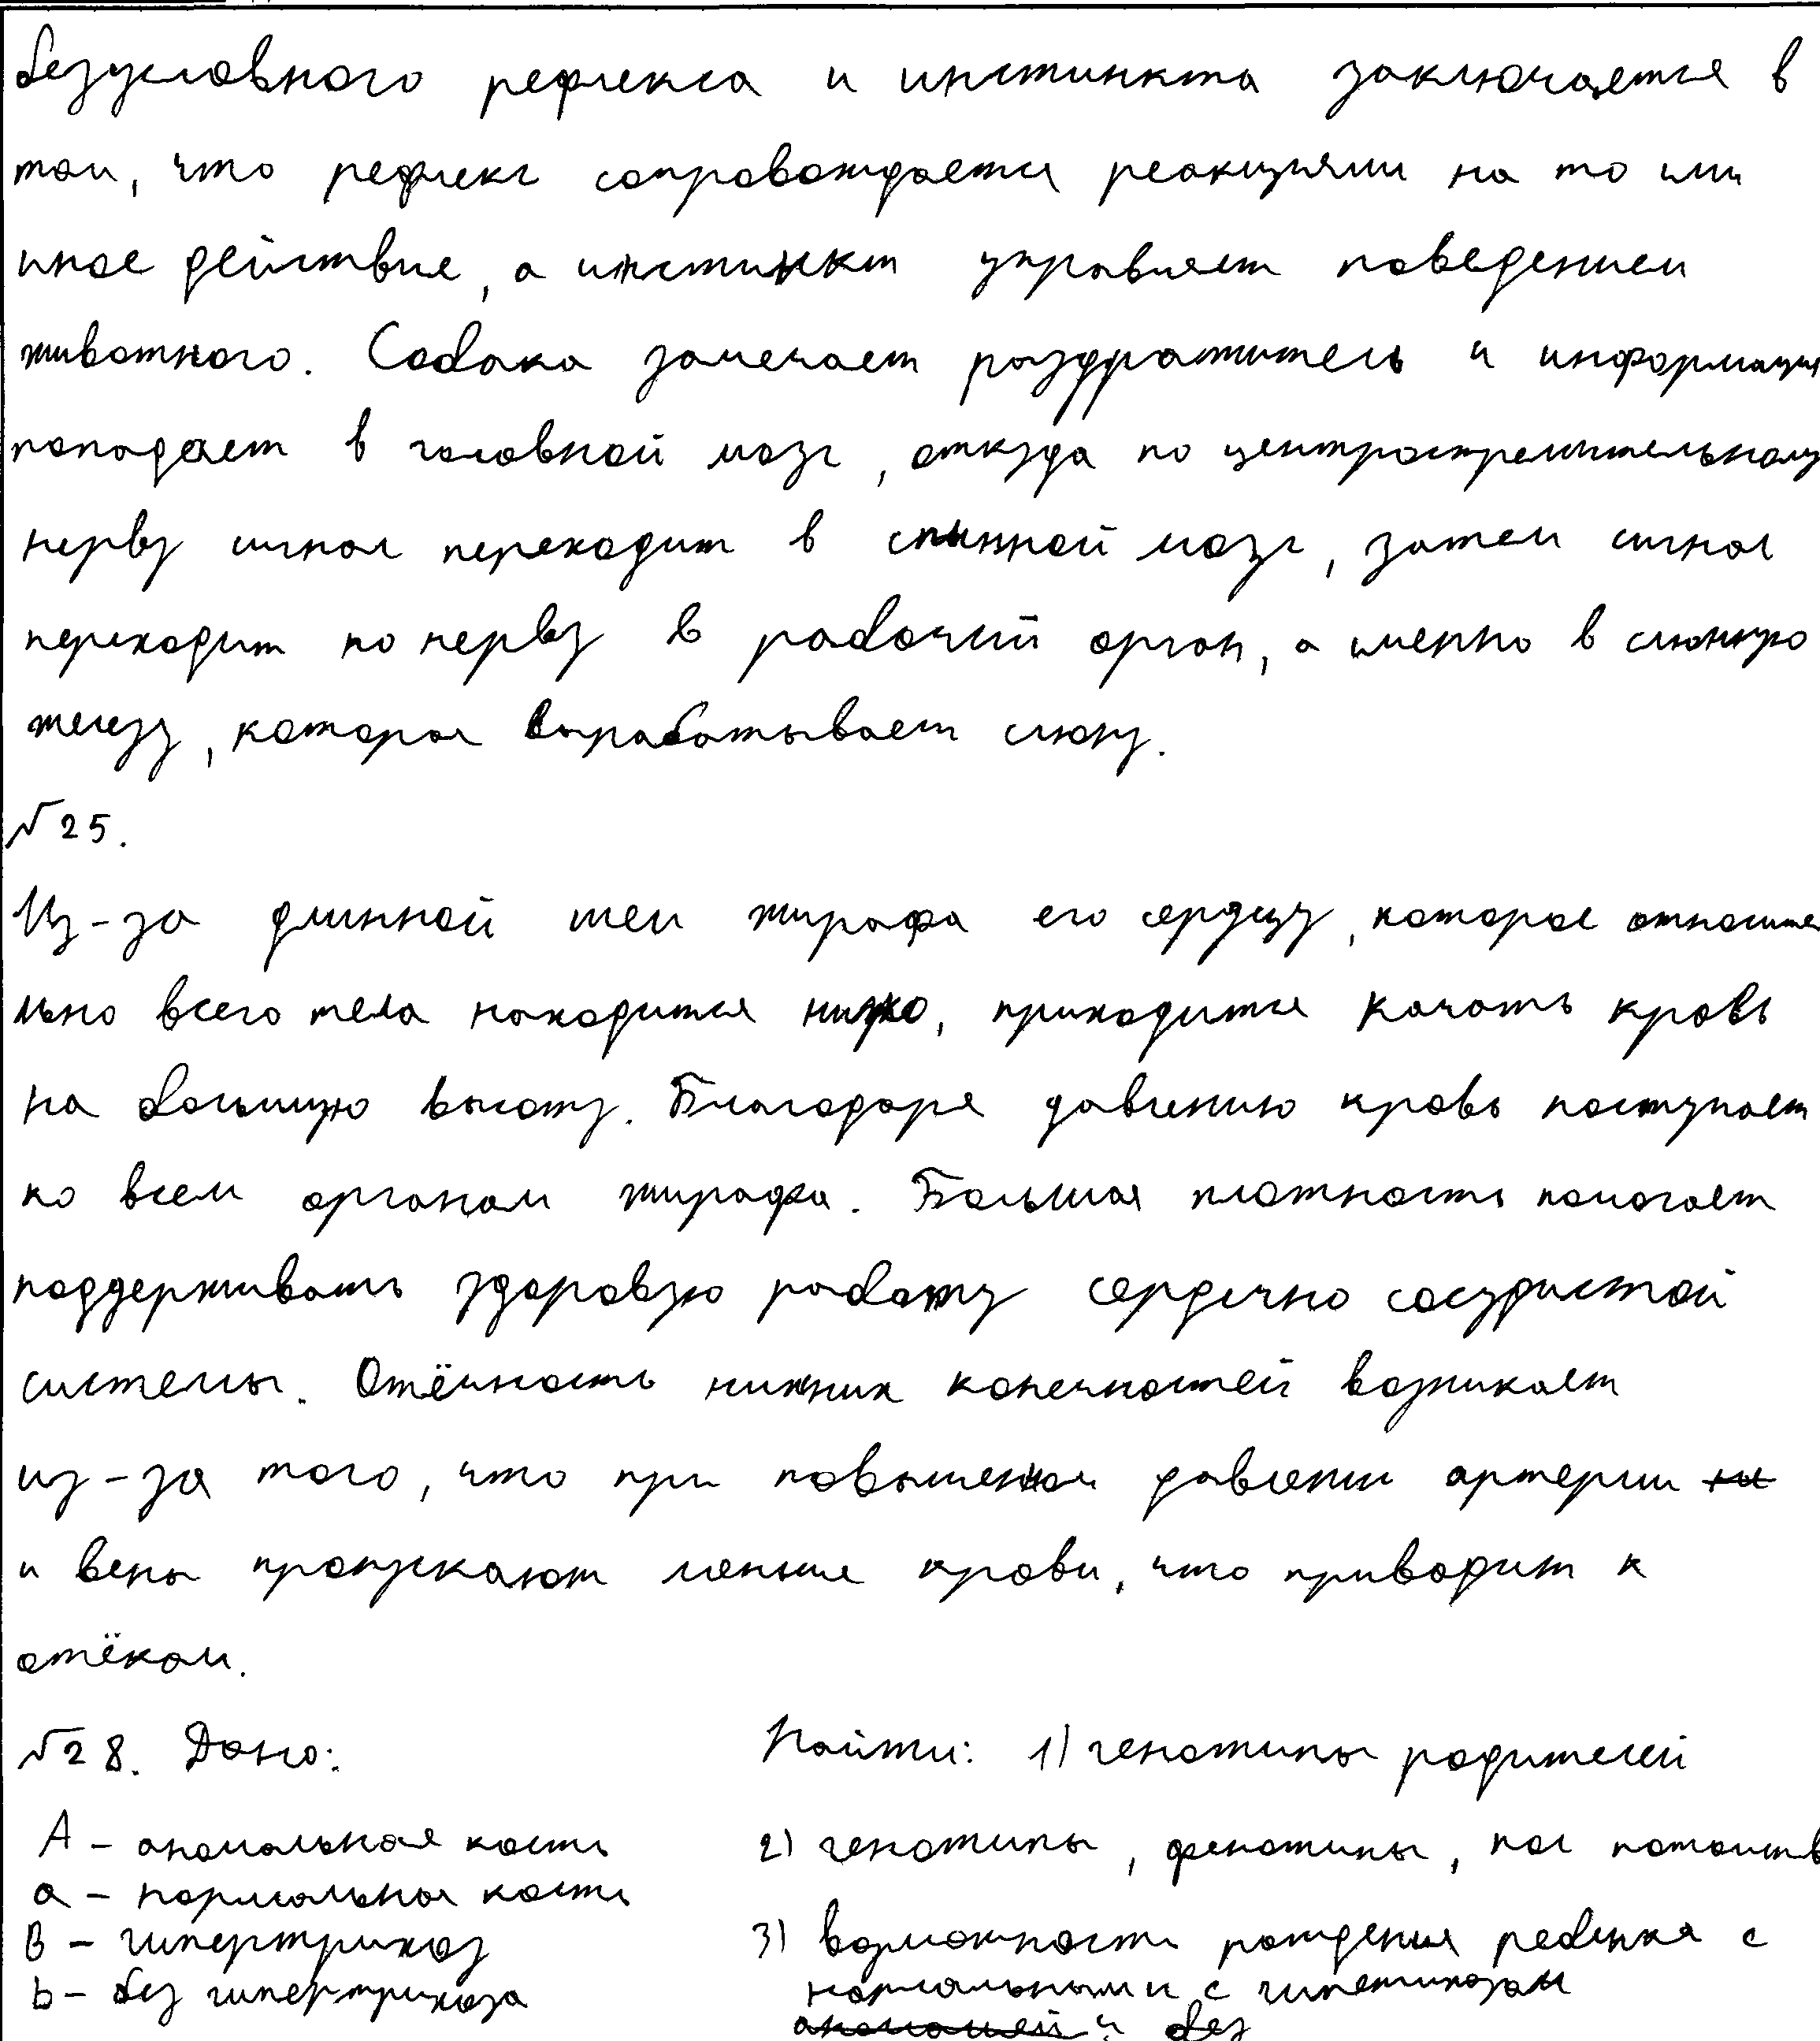 безусловного рефлекса и инстинкта заключается в
том, что рефлекс сопровождается реакциями на то или
иное действие, а инстинкт управляет поведением
животного. Собака замечает раздражитель и информация
попадает в головной мозг, откуда по центростремительному
нерву сигнал переходит в спинной мозг, затем сигнал
переходит по нерву в рабочий орган, а именно в слюнную
железу, которая вырабатывает слюну.
№25.
Из-за длинной шеи жирафа его сердцу, которое относите
льно всего тела находится низко, приходится качать кровь
на большую высоту. Благодаря давлению кровь поступает
ко всем органам жирафа. Большая плотность помогает
поддерживать здоровую работу сердечно сосудистой
системы. Отёчность нижних конечностей возникает
из-за того, что при повышенном давлении артерии
и вены пропускают меньше крови, что приводит к
отёкам.
№28. Дано: Найти: 1) генотипы родителей
А - аномальная кость 2) генотипы, фенотипы, пол потомств
а - нормальная кость
В - гипертрихоз 3) возможность рождения ребенка с
b - без гипертрихоза нормальными с гипетихозом
аномалией и без